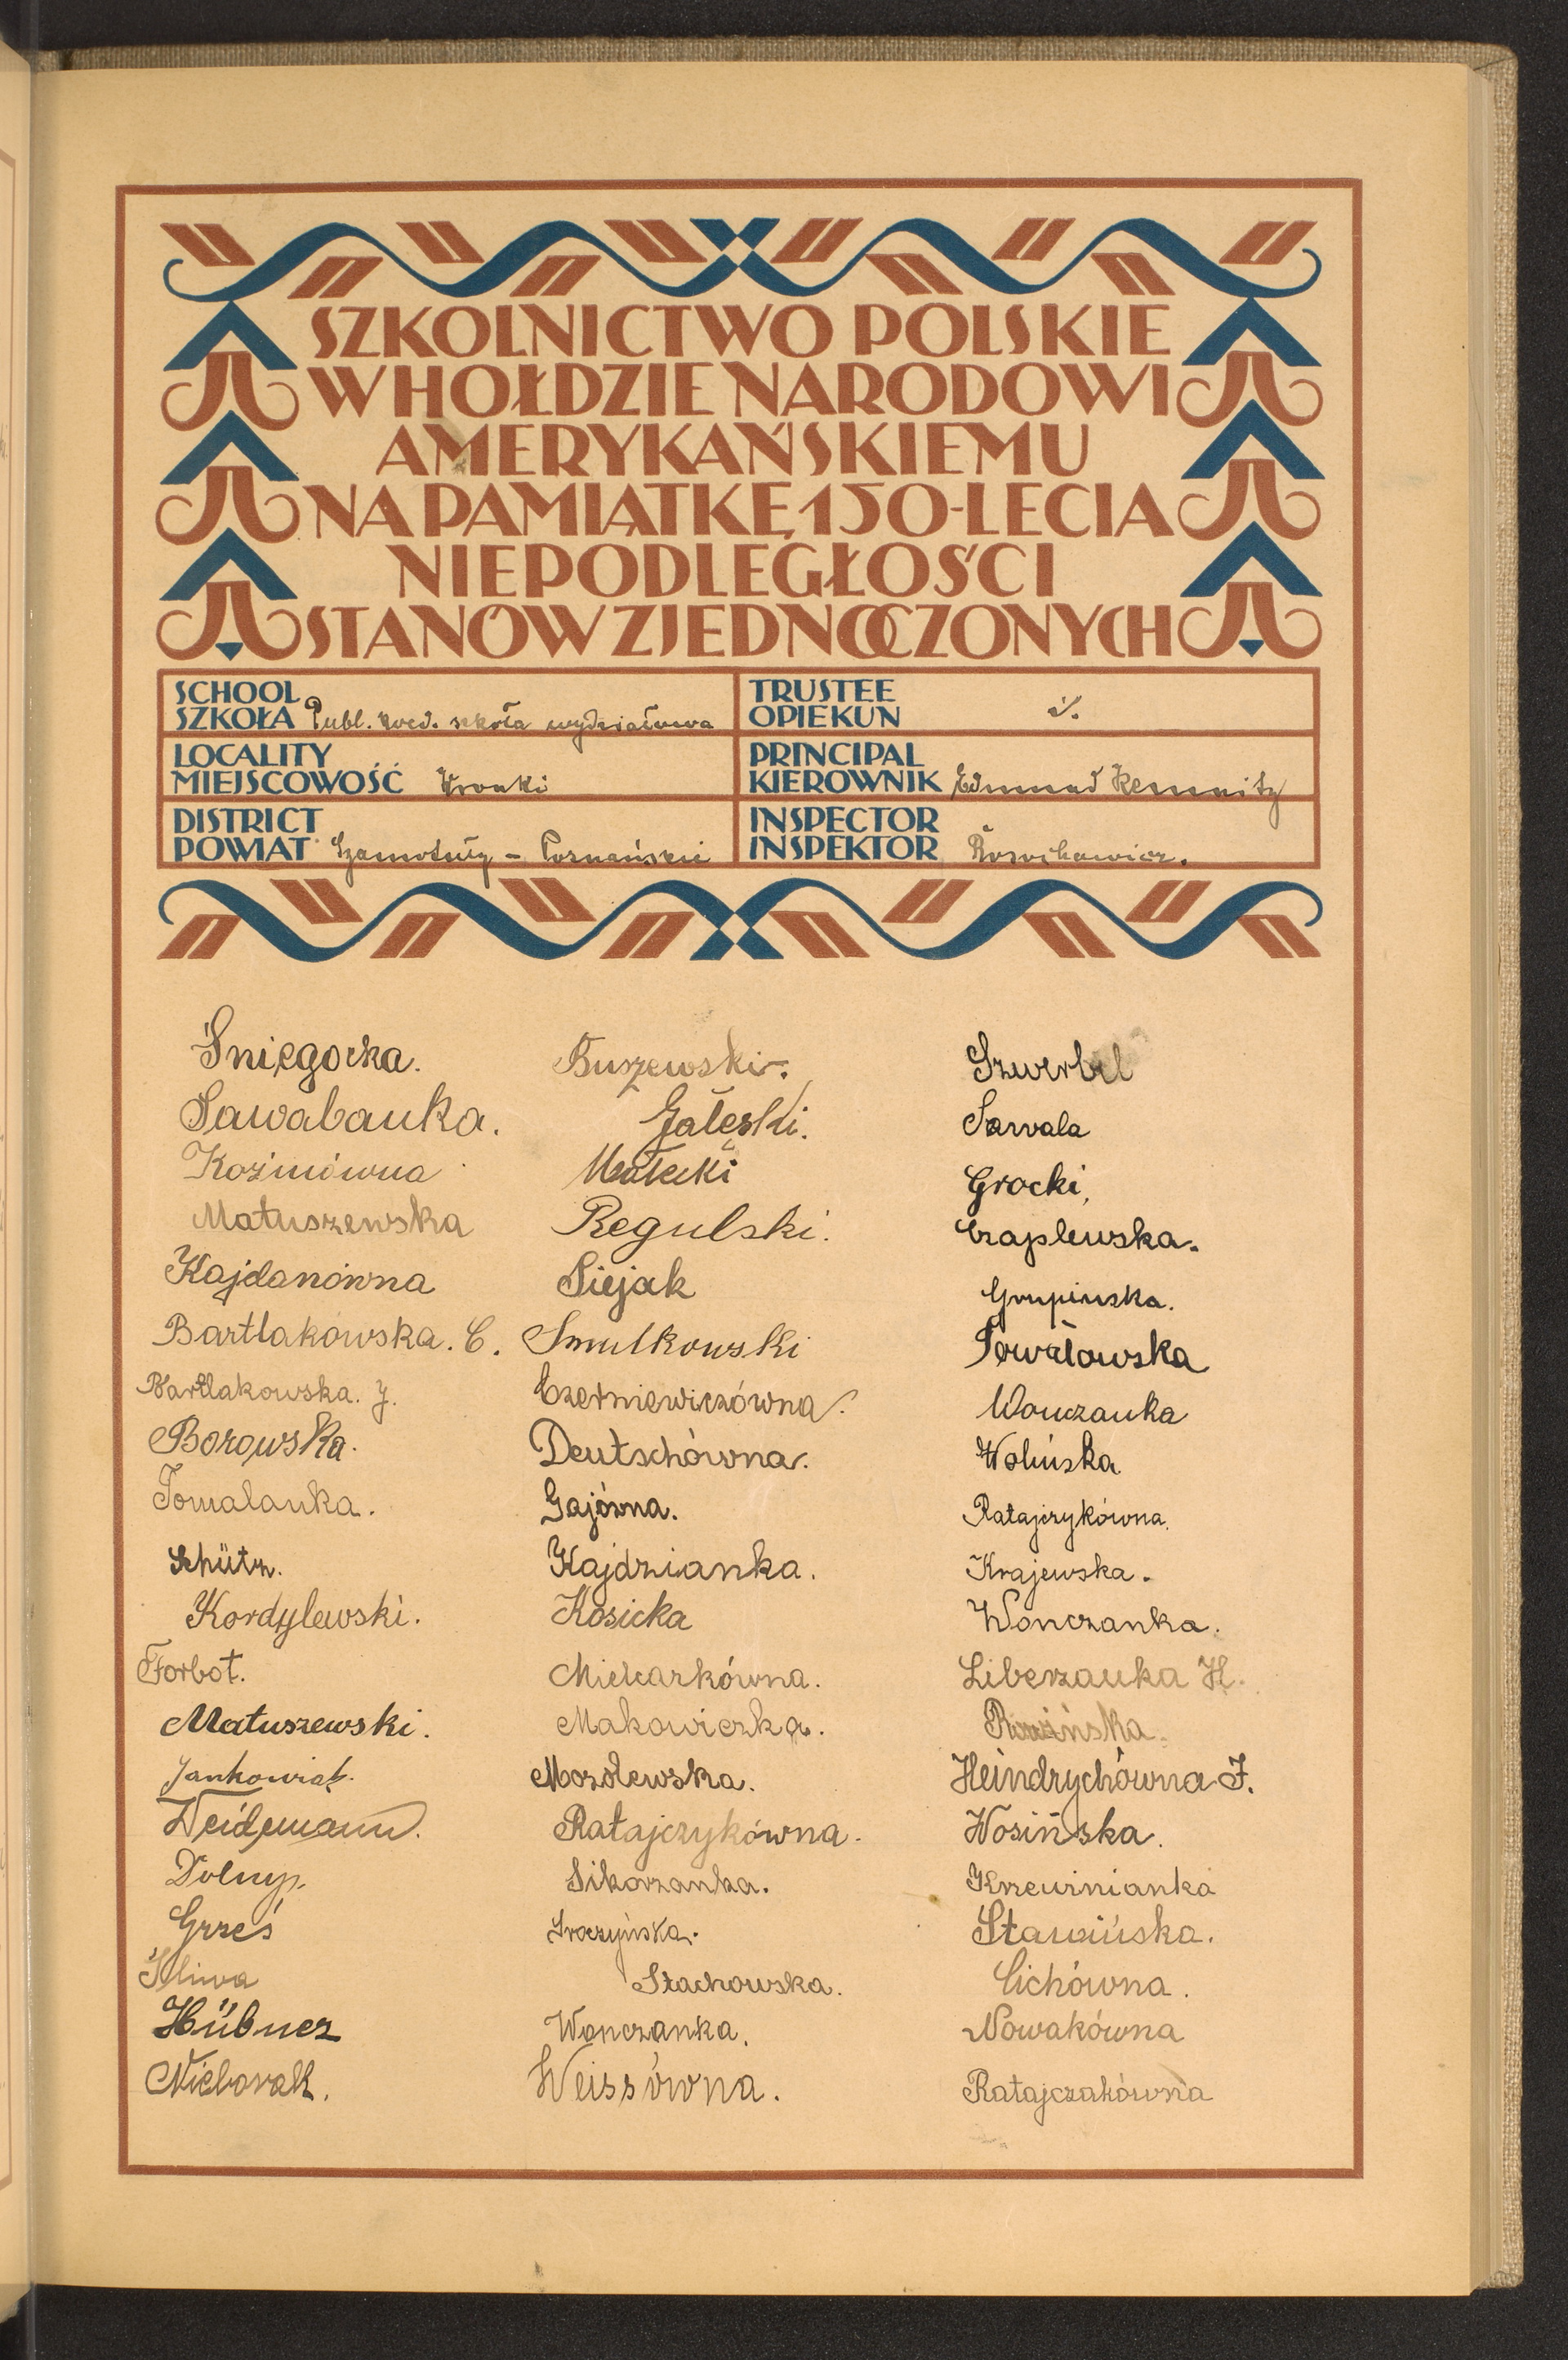 SZKOLNICTWO POLSKIE
W HOŁDZIE NARODOWI
AMERYKAŃSKIEMU
NA PAMIĄTKĘ 150-LECIA
NIEPODLEGŁOŚCI
STANÓW ZJEDNOCZONYCH
SCHOOL
SZKOŁA Publ. koed. szkoła wydziałowa
TRUSTEE
OPIEKUN
LOCALITY
MIEJSCOWOŚĆ Wronki
PRINCIPAL
KIEROWNIK Edmund Kemnitz
DISTRICT
POWIAT Szamotuły - Poznański
INSPECTOR
INSPEKTOR
Śniegocka.
Sawabauka.
Koźmówna
Matuszewska
Kajdanówna
Bartlakowska. C.
Bartlakowska. J.
Borowska.
Tomalanka.
Schütz.
Kordylewski.
Forbot.
Matuszewski.
Jankowiak.
Weidemann.
Dolny.
Grześ
Śliwa
Hübner
Nieborak.
Buszewski.
Gałęski.
Małecki
Regulski.
Siejak
Smulkowski
Czerniewiczówna.
Deutschówna.
Gajówna.
Kajdzianka.
Kosicka
Mielcarkówna.
Makowiczka.
Mozolewska.
Ratajczykówna.
Sikorzanka.
Sroczyńska.
Stachowska.
Wonczanka.
Weissówna.
Szwerbel
Sawala
Grocki,
Czaplewska.
Grupińska.
Powałowska
Wonczanka
Wolińska
Ratajczykówna.
Krajewska.
Wonczanka.
Liberzanka H.
Heindrychówna J.
Wosińska.
Krzewinianka
Stawińska.
Cichówna.
Nowakówna
Ratajczakówna